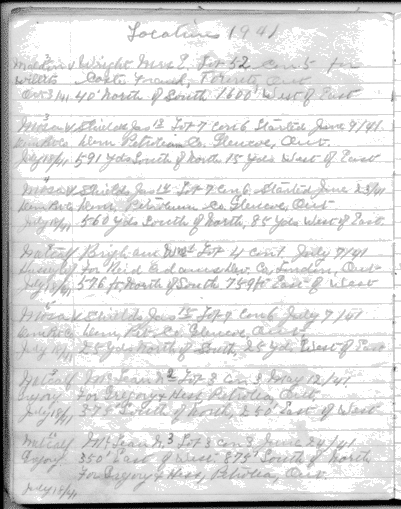 Locations 1941
Wright Mrs E. Lot 52 Con 5 for
Toronto, Ont
Oct 3/41 40' North of South 1600' West of East
3
Mosa Shields Jas Lot 7 Con 6 Started June 9/41
Petroleum Co. Glencoe, Ont.
July 18/41 591 yds South of North 15 yds West of East
4
Mosa Shields Jas Lot 7 Con 6 Started June 23/41
Petroleum Co Glencoe, Ont.
July 18/41 560 yds South of North, 85 yds West of East.
Metcalf Brigham Lot 4 Con 1 July 7/41
for Co. London, Ont
July 18/41 576 ft North of South 759 ft East of West
5
Mosa Shields Jas Lot 7 Con 6 July 7/41
Pet. Co Glencoe, Ont
July 18/41 25 yds North of South, 25 yds. West of East
Metcalf McLean No 2 Lot 3 Con 3 May 12/41
For Gregory & Hess, Petrolia, Ont.
July 18/41 375' South of North, 250' East of West
Metcalf McLean No 3 Lot 3 Con 3 June 24/41
350' East of West 375' South of North
For Gregory & Hess, Petrolia, Ont.
July 18/41